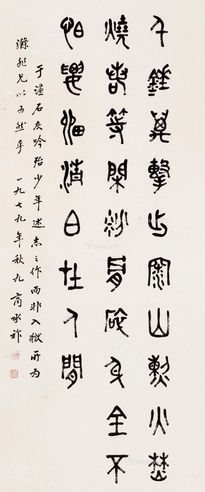 千錘萬擊出深山烈火焚
燒若等閒粉骨碎身全不
怕要留清白在人間
于謙石灰吟殆少年述志之作而非入獄所為
滌非兄以為然乎 一九七九年秋九商承祚